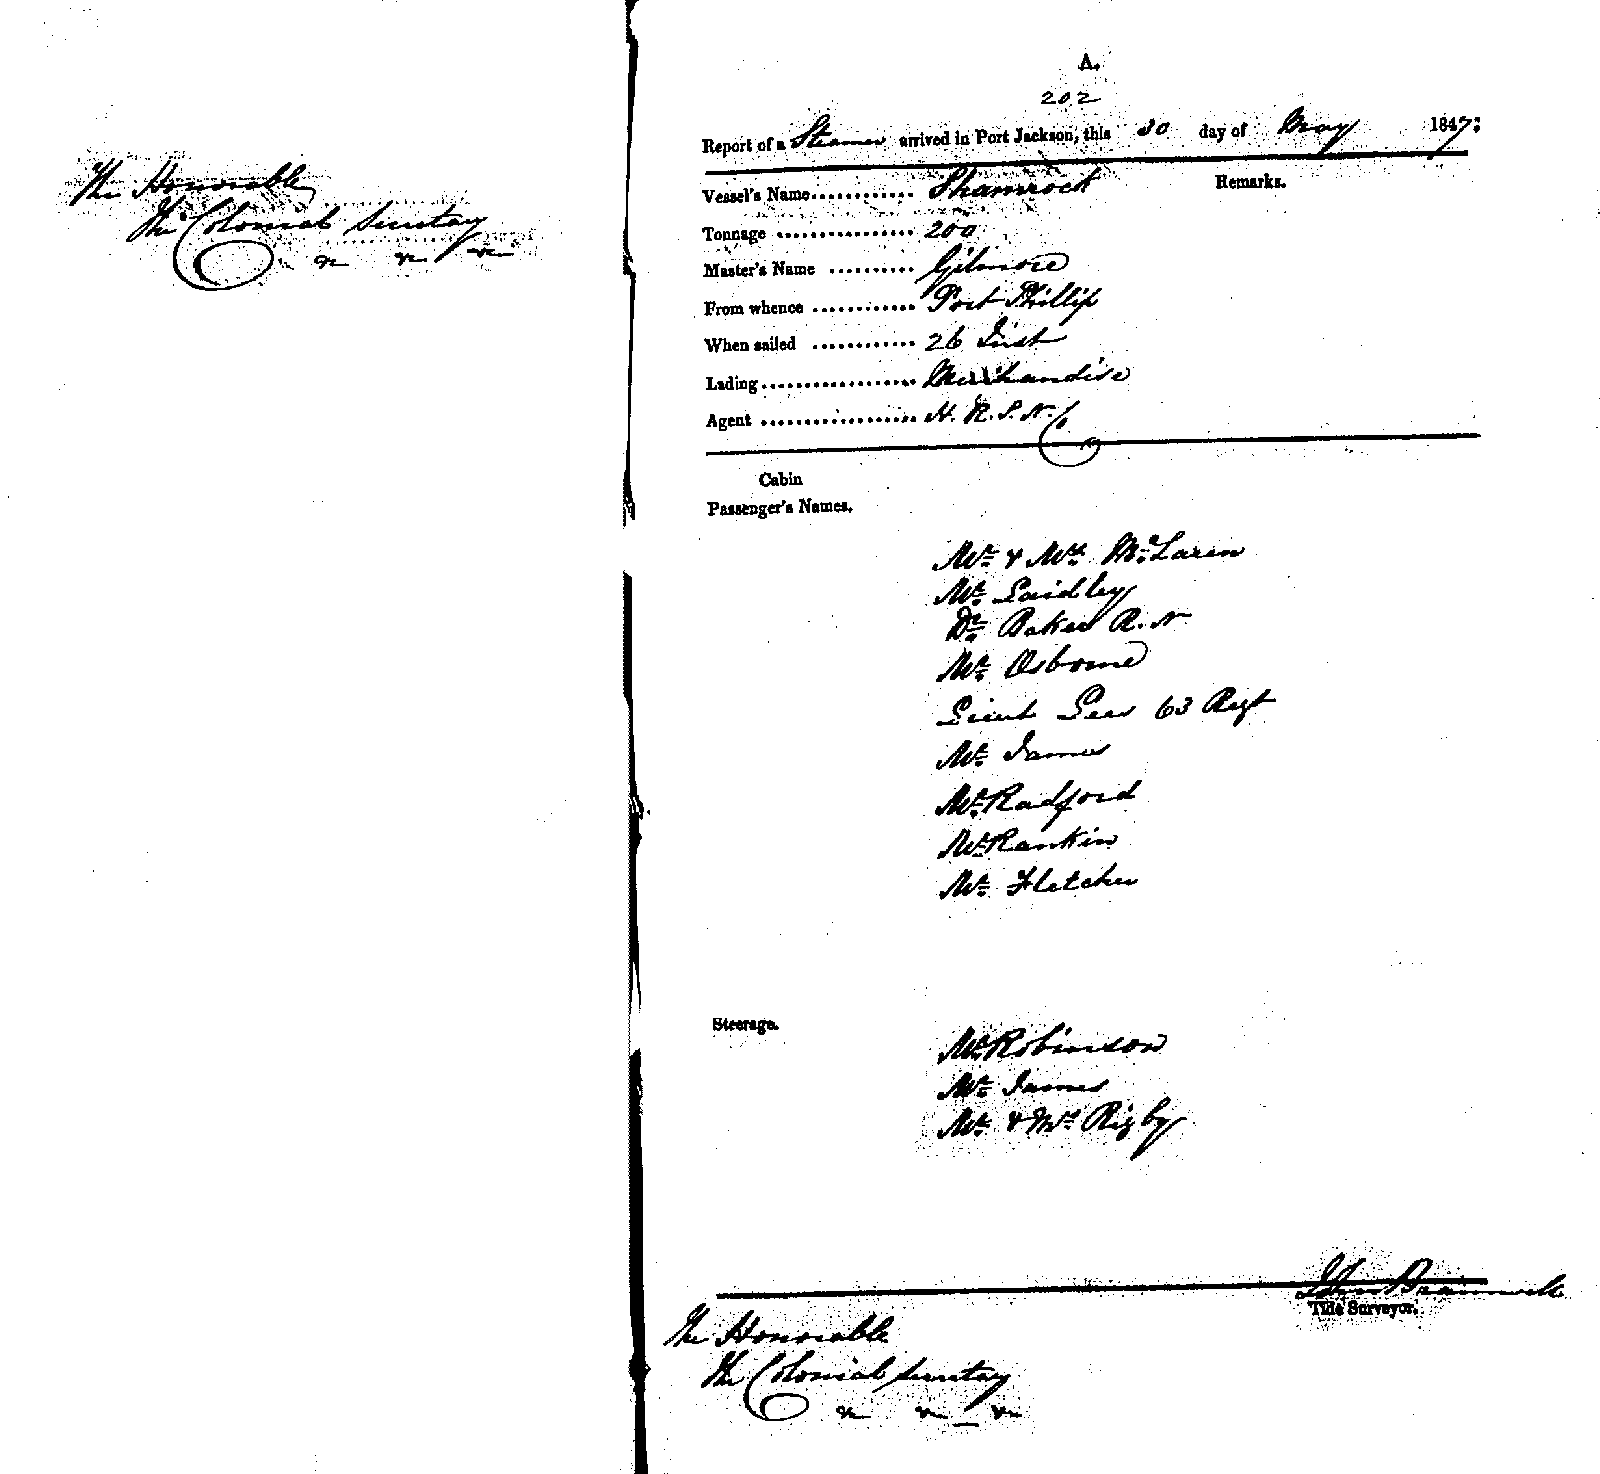 The Honorable
The Colonial Secretary
&c &c &c
A.
202
Report of a Steamer arrived in Port Jackson, this 30 day of May 1847:
Vessel's Name............ Shamrock Remarks.
Tonnage ................ 200
Master's Name .......... Gilmore
From whence ............ Port Phillip
When sailed ............ 26 Inst
Lading.................. Merchandise
Agent .................. H. R. S. N. Co
Cabin
Passenger's Names.
Mr & Mrs McLaren
Mr Laidley
Dr Baker R. N
Mr Osborne
Lieut Lees 63 Regt
Mr James
Mr Radford
Mr Rankin
Mr Fletcher
Steerage.
Mr Robinson
Mr James
Mr & Mrs Rigby
John Bramwell
Tide Surveyor.
The Honorable
The Colonial Secretary
&c &c &c